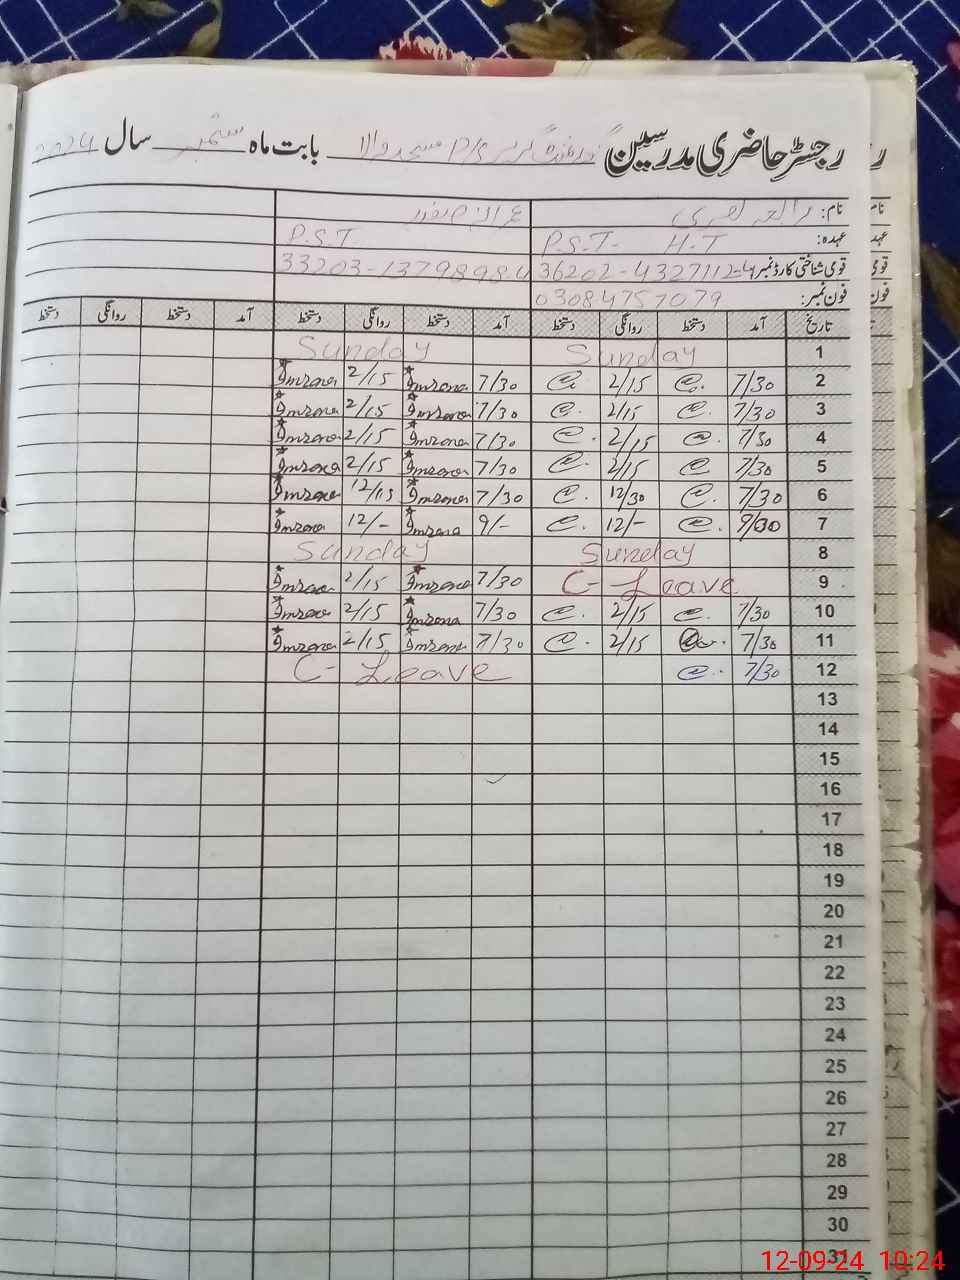 رجسٹر حاضری مدرسین گورنمنٹ گرلز P/S مسجد والا بابت ماہ ستمبر سال 2024
نام:
عہدہ: P.S.T- H.T P.S.T
قومی شناختی کارڈ نمبر 36202-4327112-4 33203-1379898-4
فون نمبر: 03084757079
تاریخ آمد دستخط روانگی دستخط آمد دستخط روانگی دستخط آمد دستخط روانگی دستخط
1 Sunday Sunday
2 7/30 2/15 7/30 Imrana 2/15 Imrana
3 7/30 2/15 7/30 Imrana 2/15 Imrana
4 7/30 2/15 7/30 Imrana 2/15 Imrana
5 7/30 2/15 7/30 Imrana 2/15 Imrana
6 7/30 12/30 7/30 Imrana 12/15 Imrana
7 9/30 12/- 9/- Imrana 12/- Imrana
8 Sunday Sunday
9 C- Leave 7/30 Imrana 2/15 Imrana
10 7/30 2/15 7/30 Imrana 2/15 Imrana
11 7/30 2/15 7/30 Imrana 2/15 Imrana
12 7/30 C- Leave
13
14
15
16
17
18
19
20
21
22
23
24
25
26
27
28
29
30
31
12-09-24 10:24